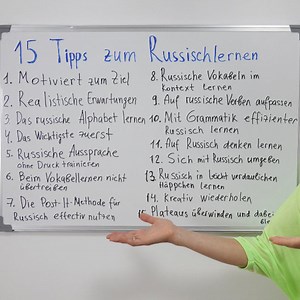 15 Tipps zum Russischlernen
1. Motiviert zum Ziel
2. Realistische Erwartungen
3. Das russische Alphabet lernen
4. Das Wichtigste zuerst
5. Russische Aussprache
ohne Druck trainieren
6. Beim Vokabellernen nicht
übertreiben
7. Die Post-It-Methode für
Russisch effectiv nutzen
8. Russische Vokabeln im
Kontext lernen
9. Auf russische Verben aufpassen
10. Mit Grammatik effizienter
Russisch lernen
11. Auf Russisch denken lernen
12. Sich mit Russisch umgeben
13. Russisch in leicht verdaulichen
Häppchen lernen
14. Kreativ wiederholen
Plateaus überwinden und dabei